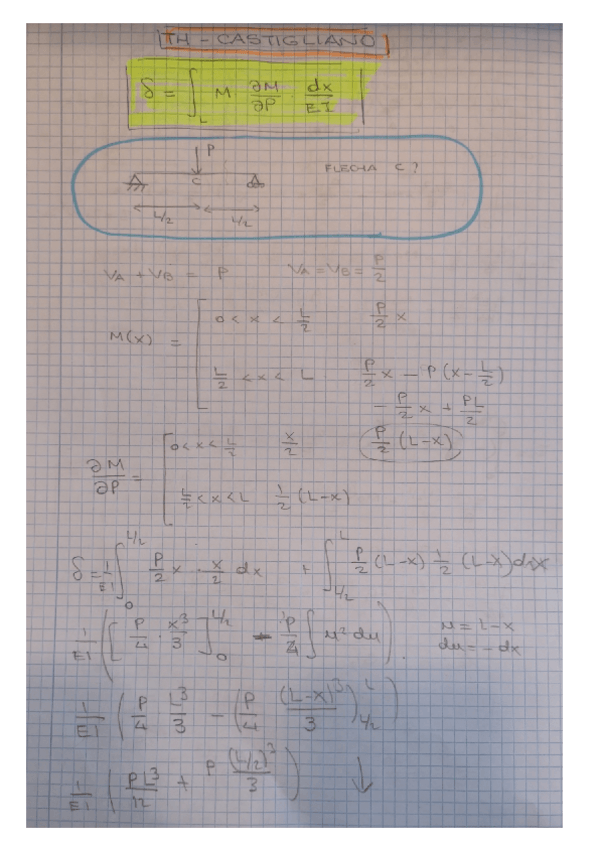 TH - CASTIGLIANO
δ = ∫_L M ∂M/∂P · dx/EI
P
FLECHA C?
C
L/2 L/2
VA + VB = P VA = VB = P/2
M(x) =
0 < x < L/2 P/2 x
L/2 < x < L P/2 x - P(x - L/2)
- P/2 x + PL/2
P/2 (L-x)
∂M/∂P =
0 < x < L/2 x/2
L/2 < x < L 1/2 (L-x)
δ = 1/EI ∫_0^{L/2} P/2 x · x/2 dx + ∫_{L/2}^L P/2 (L-x) 1/2 (L-x) dx
1/EI ([P/4 · x³/3]_0^{L/2} - P/4 ∫ u² du) u = L-x
du = - dx
1/EI (P/4 L³/3 - (P/4 (L-x)³/3)_{L/2}^L)
1/EI (PL³/12 + P (L/2)³/3) ↓